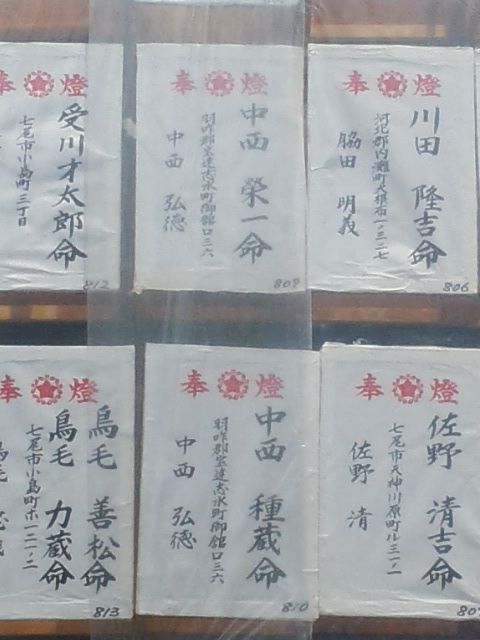 奉 燈
川田 隆吉命
河北郡内灘町大根布一ノ三二七
脇田 明義
806
奉 燈
中西 榮一命
羽咋郡宝達志水町御舘口三六
中西 弘徳
809
燈
受川才太郎命
七尾市小島町三丁目
812
奉 燈
佐野 清吉命
七尾市天神川原町ル三一ノ一
佐野 清
奉 燈
中西 種蔵命
羽咋郡宝達志水町御舘口三六
中西 弘徳
810
奉 燈
鳥毛 善松命
鳥毛 力蔵命
七尾市小島町ホ一二一ノ二
813